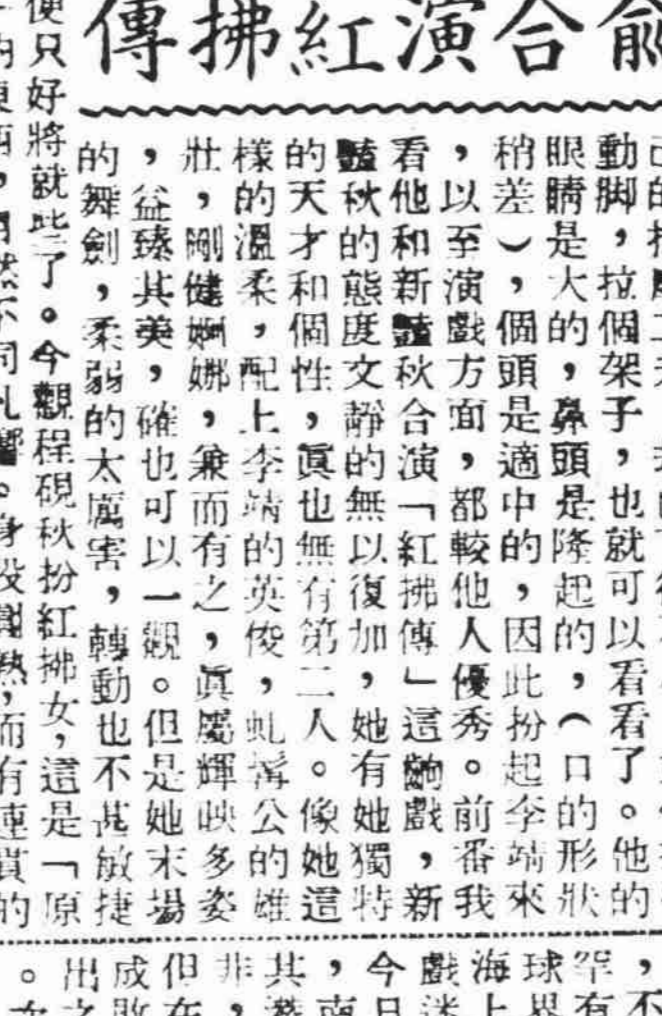 俞合演紅拂傳
動脚，拉個架子，也就可以看看了。他的
眼睛是大的，鼻頭是隆起的，（口的形狀
稍差），個頭是適中的，因此扮起李靖來
，以至演戲方面，都較他人優秀。前番我
看他和新豔秋合演「紅拂傳」這齣戲，新
豔秋的態度文靜的無以復加，她有她獨特
的天才和個性，眞也無有第二人。像她這
樣的溫柔，配上李靖的英俊，虬髯公的雄
壯，剛健婀娜，兼而有之，眞屬輝映多姿
，益臻其美，確也可以一觀。但是她末場
的舞劍，柔弱的太厲害，轉動也不甚敏捷
便只好將就些了。今觀程硯秋扮紅拂女，這是「原
，不
罕有
球界
海上
戲迷
今日
，南
其
非，
但在
成敗
出之
。